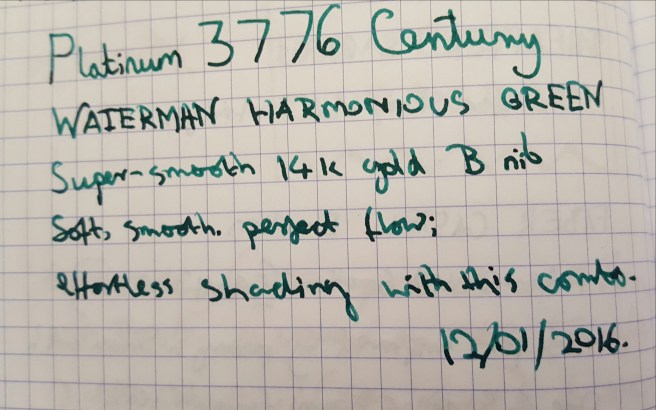 Platinum 3776 Century
WATERMAN HARMONIOUS GREEN
Super-smooth 14k gold B nib
Soft, smooth. perfect flow;
effortless shading with this combo.
12/01/2016.